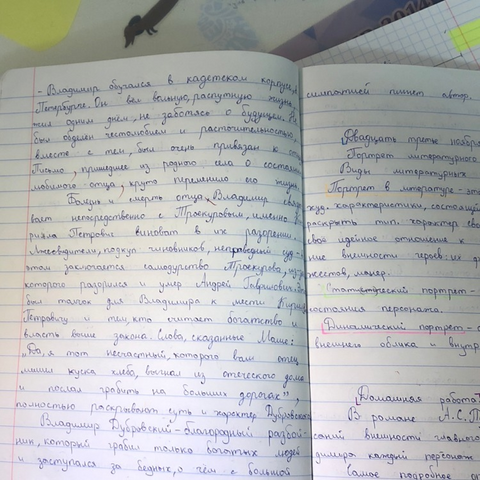 - Владимир обучался в кадетском корпусе в
Петербурге. Он вёл вольную, распутную жизнь,
жил одним днём, не заботясь о будущем. Он
был одержим честолюбием и расточительностью,
вместе с тем, был очень привязан к отцу.
Письмо, пришедшее из родного села о состоянии
любимого отца, круто переменило его жизнь.
Болезнь и смерть отца Владимир связы-
вает непосредственно с Троекуровым, именно К
рилла Петрович виноват в их разорении.
Лжесвидетели, подкуп чиновников, неправедный суд - в
этом заключается самодурство Троекурова, из-за
которого разорился и умер Андрей Гаврилович. Это
был толчок для Владимира к мести Кирилу
Петровичу и тем, кто считает богатство и
власть выше закона. Слова, сказанные Маше:
„Да, я тот несчастный, которого ваш отец
лишил куска хлеба, выгнал из отеческого дома
и послал грабить на больших дорогах",
полностью раскрывают суть и характер Дубровского.
Владимир Дубровский - благородный разбой-
ник, который грабил только богатых людей
и заступался за бедных, о чём с большой
симпатией пишет автор.
Двадцать третье ноября
Портрет литературного
Виды литературных
Портрет в литературе - это
худ. характеристики, состоящей
раскрыть тип. характер сво
своё идейное отношение к
ние внешности героев: их ф
жестов, манер.
Статический портрет -
состояния персонажа.
Динамический портрет - с
внешнего облика и внутр
Домашняя работа
В романе А.С.П
саний внешности главного
димира каждый персонаж
Самое подробное оп